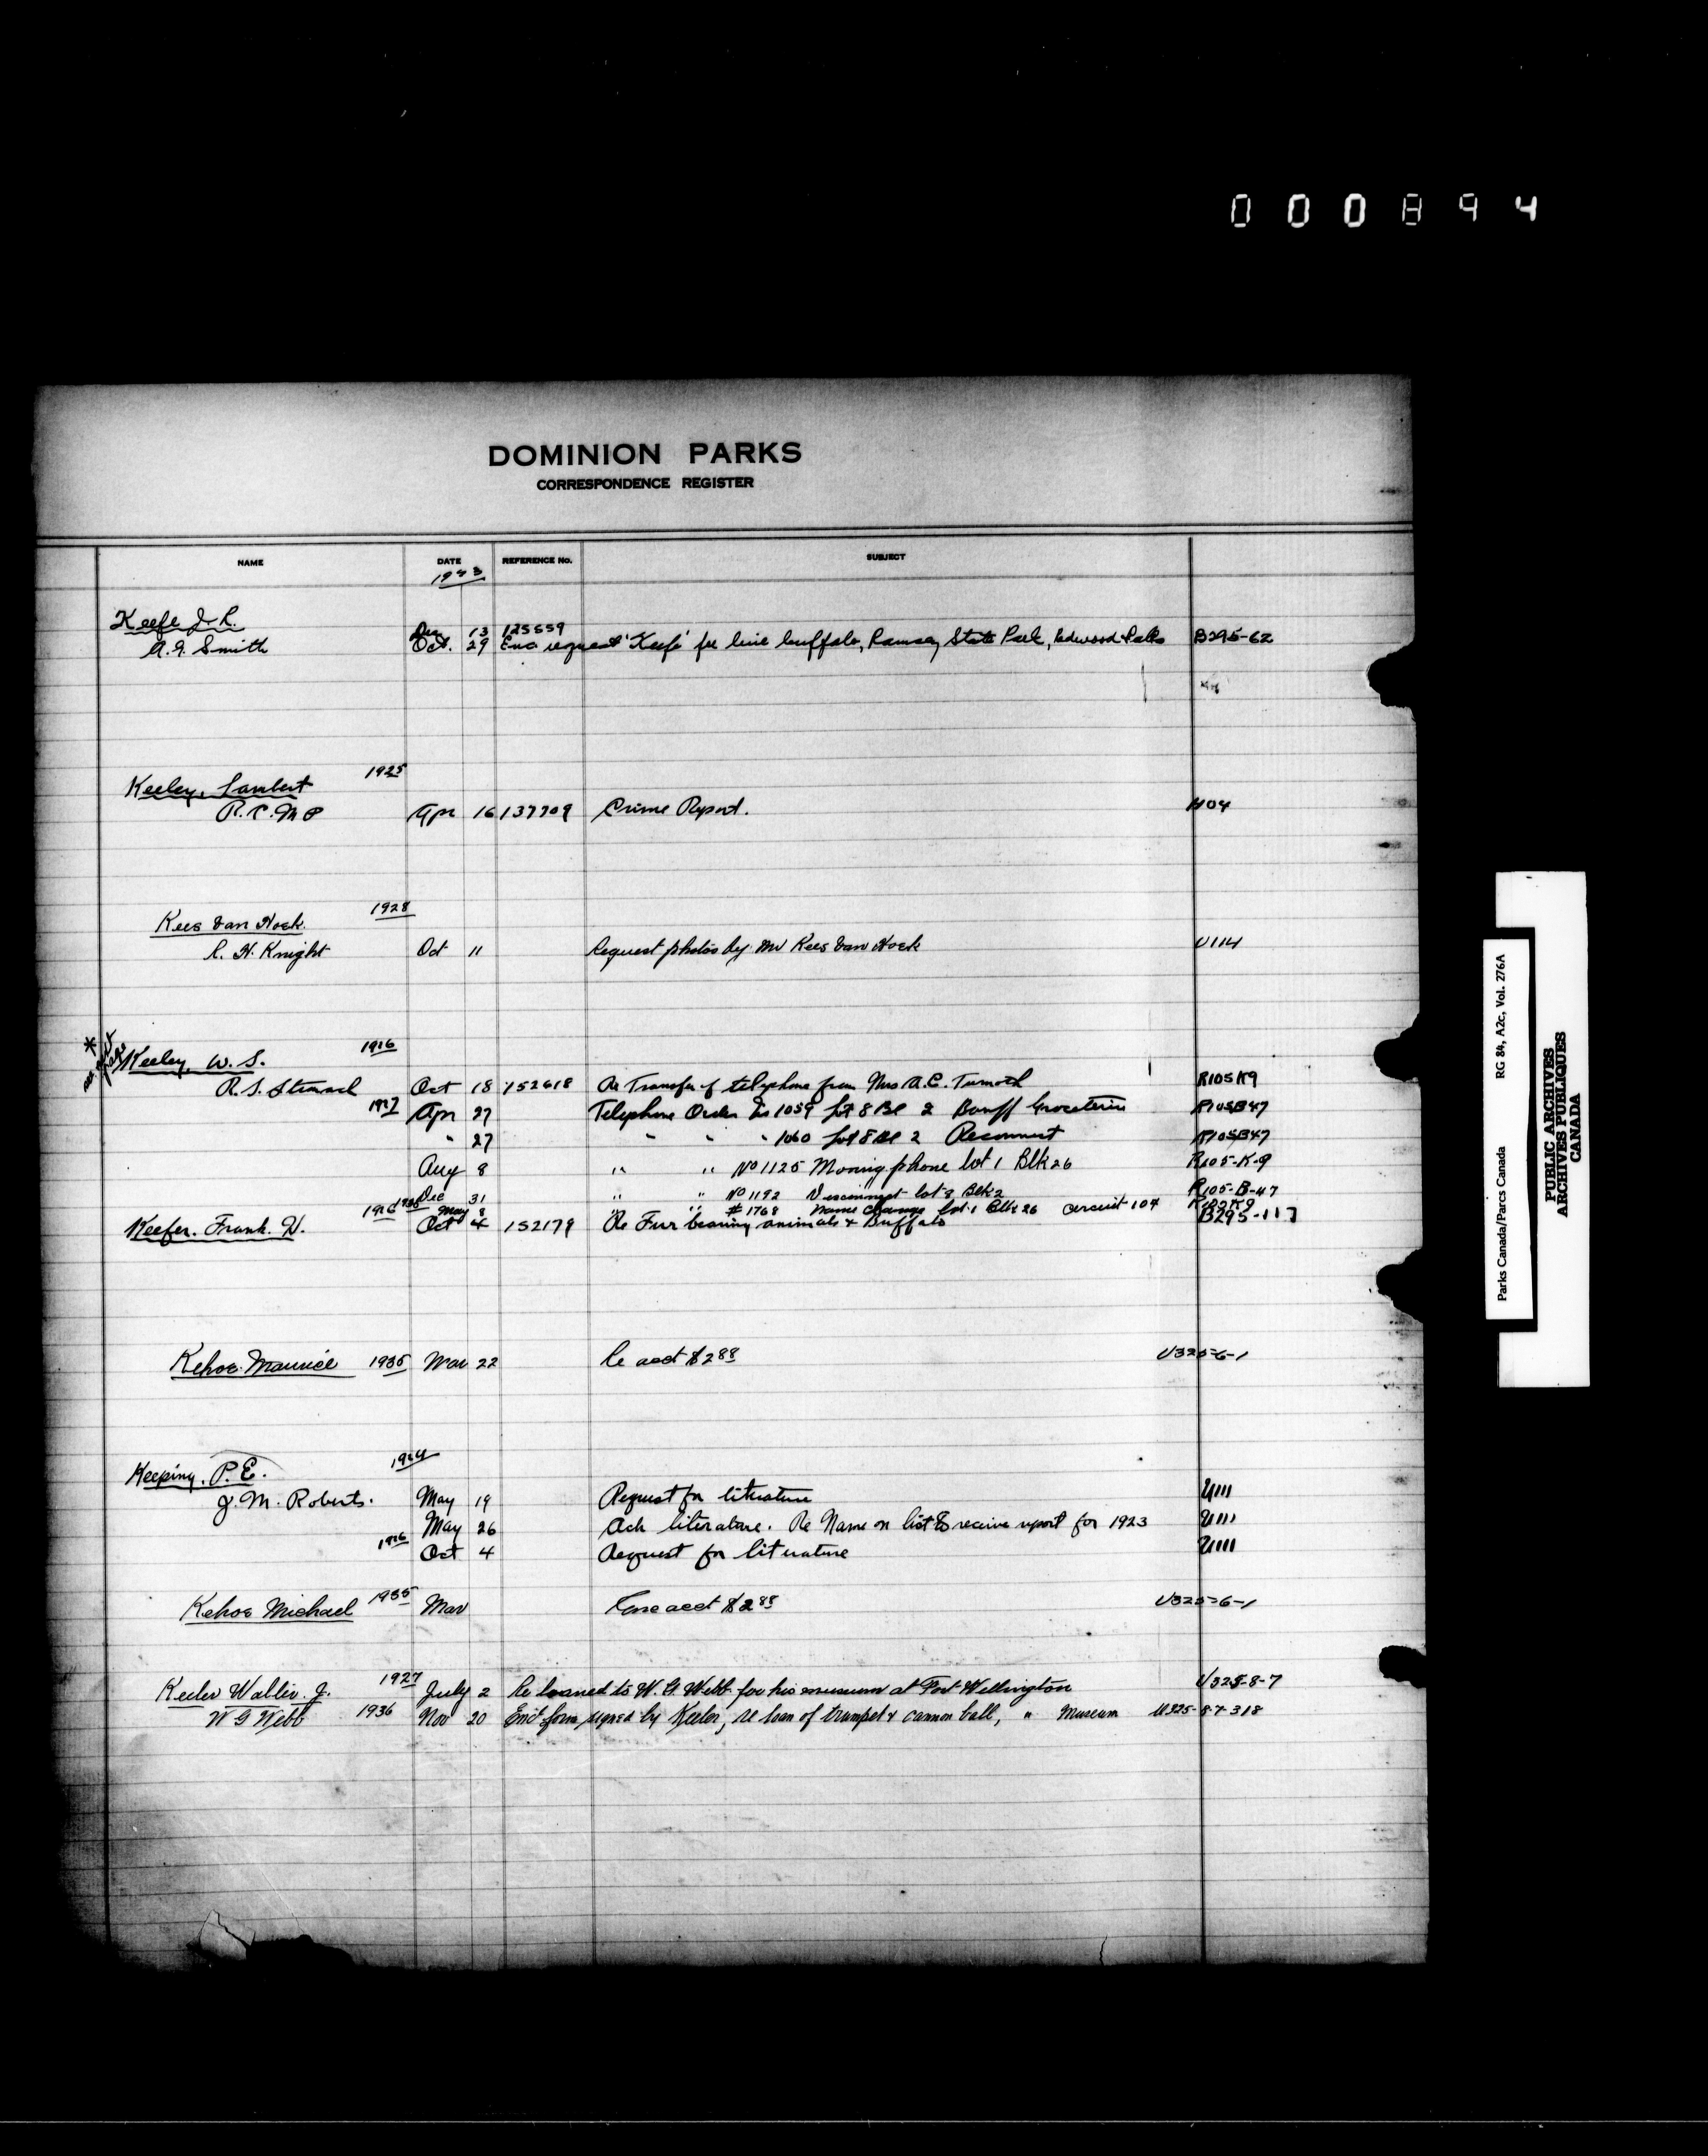 000894
DOMINION PARKS
CORRESPONDENCE REGISTER
NAME DATE REFERENCE No. SUBJECT
Keefe J. R. Dec 13 125559
A. G. Smith Oct. 29 Enc request 'Keefe' for live buffalo, Ramsey State Park, Redwood Falls B295-62
1925
Keeley, Lambert
R.C.M.P Apr 16 137709 Crime Report.
1928
Kees van Hoek
R. H. Knight Oct 11 Request photos by Mr Kees van Hoek U114
1916
Keeley, W. S.
Oct 18 152618 Re Transfer of telephone from Mrs A.C. R105K9
Apr 27 Telephone Order No 1059 Lot 8 Bl 2 Banff Groceteria R105B47
" 27 " " " 1060 Lot 8 Bl 2 Reconnect R105B47
Aug 8 " " No 1125 Moving phone lot 1 Blk 26 R105-K-9
Dec 31 " " No 1192 Disconnect lot 3 Blk 2 R105-B-47
May 8 " " # 1768 Name change Lot 1 Blk 26 circuit 104 R105K9
Keefer. Frank. H. Oct 4 152179 Re Fur bearing animals & Buffalo B295-117
Kehoe Maurice 1935 Mar 22 Re acct $2 88 U325-6-1
1924
Keeping. P. E.
J. M. Roberts. May 19 Request for literature U111
May 26 Ack literature. Re Name on list to receive report for 1923 U111
Oct 4 Request for literature U111
Kehoe Michael 1935 Mar acct $2 88 U325-6-1
Keeler Walter J. 1927 July 2 Re loaned to W. G. Webb for his museum at Fort Wellington U325-8-7
W G Webb 1936 Nov 20 Encl form signed by Keeler, re loan of trumpet & cannon ball, " Museum U325-8-7-318
Parks Canada/Parcs Canada RG 84, A2c, Vol. 276A
PUBLIC ARCHIVES
ARCHIVES PUBLIQUES
CANADA